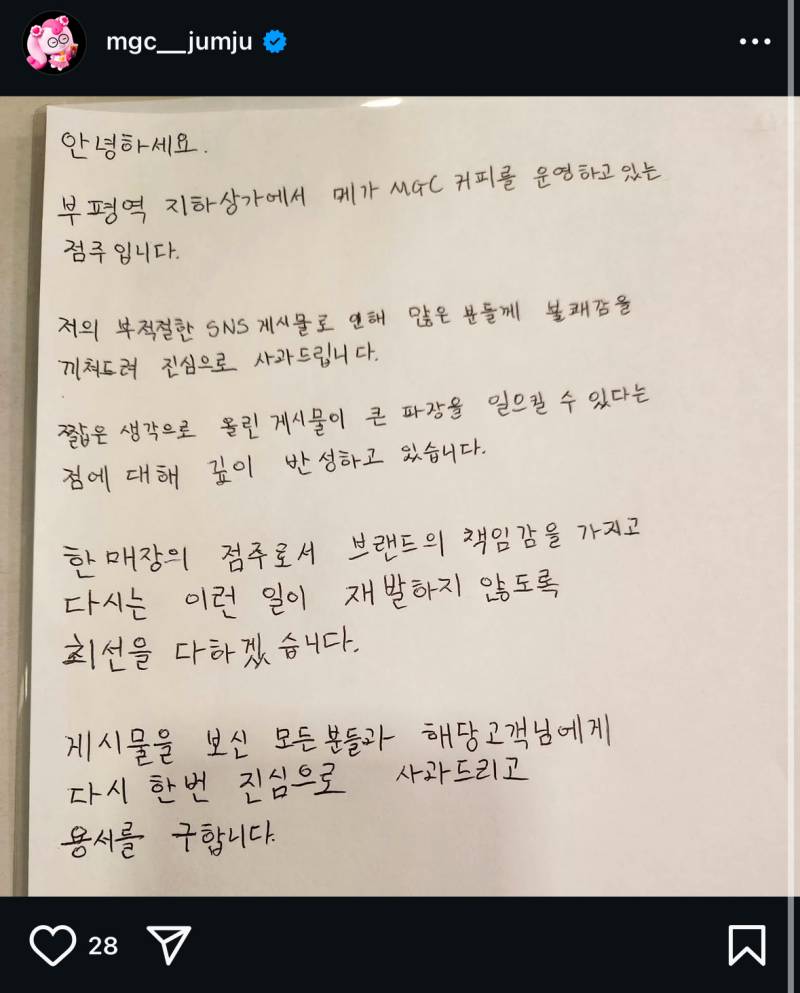 mgc__jumju
안녕하세요.
부평역 지하상가에서 메가 MGC 커피를 운영하고 있는
점주입니다.
저의 부적절한 SNS 게시물로 인해 많은 분들께 불쾌감을
끼쳐드려 진심으로 사과드립니다.
짧은 생각으로 올린 게시물이 큰 파장을 일으킬 수 있다는
점에 대해 깊이 반성하고 있습니다.
한 매장의 점주로서 브랜드의 책임감을 가지고
다시는 이런 일이 재발하지 않도록
최선을 다하겠습니다.
게시물을 보신 모든 분들과 해당고객님에게
다시 한번 진심으로 사과드리고
용서를 구합니다.
28